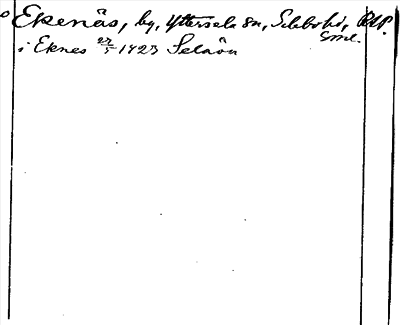 Ekenäs, by, Yttersela sn, Selebo hd,
Sml.
i Eknes 22/5 1423 Selaön